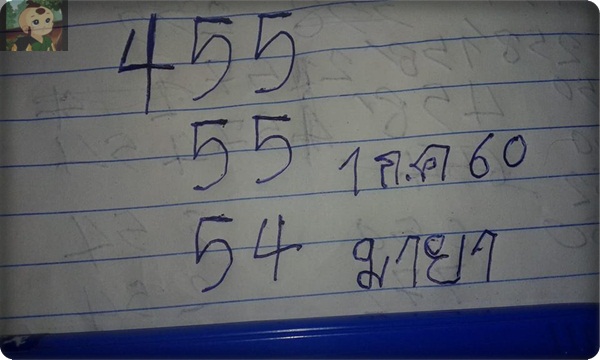 455
55 1 ก.ค 60
54 มายา